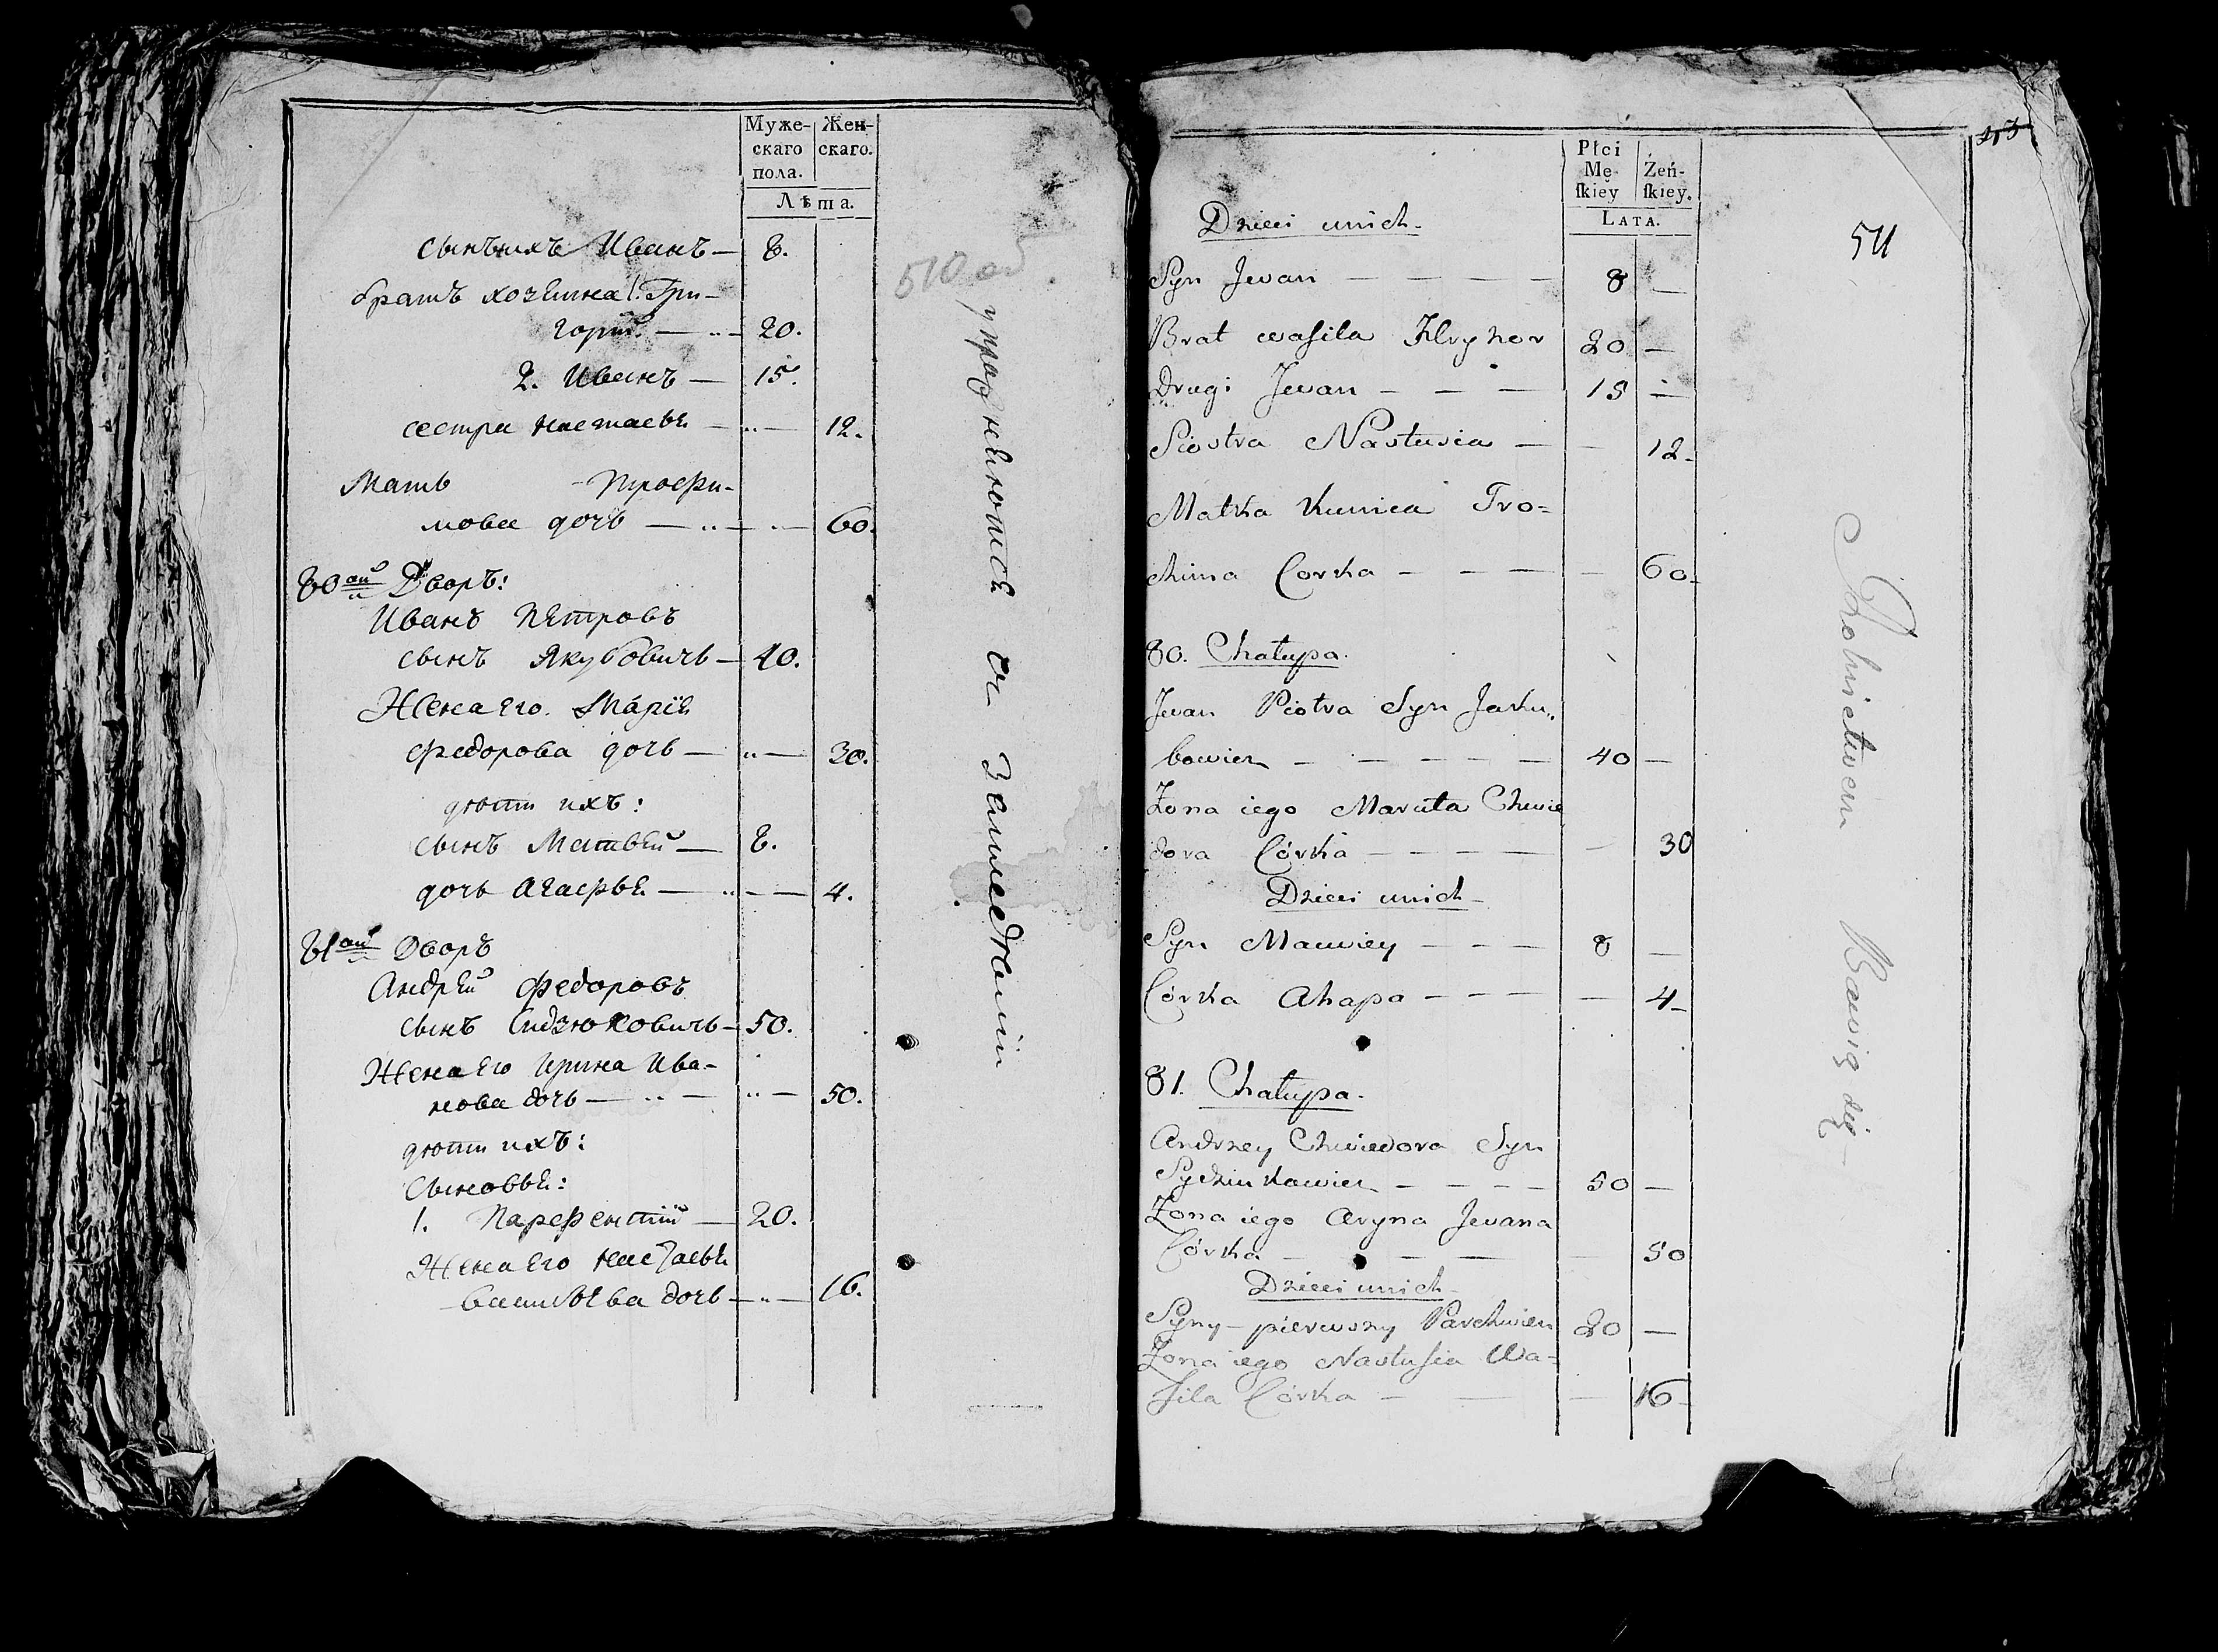 Муже-
скаго
пола.
Жен-
скаго.
Лѣта.
сынъ ихъ Иванъ — 8.
братъ хозяина 1. Гри-
горій — 20.
2. Иванъ — 15.
сестра Настасья — 12.
Мать Трофи-
мова дочь — 60.
80ой Дворъ:
Иванъ Петровъ
сынъ Якубовичъ — 40.
Жена его Марія
Федорова дочь — 30.
дѣти ихъ:
сынъ Матвей — 8.
дочь Агафья — 4.
81ой Дворъ
Андрей Федоровъ
сынъ Сидзюковичъ — 50.
Жена его Ирина Ива-
нова дочь — 50.
дѣти ихъ:
Сыновья:
1. Парфентий — 20.
Жена его Настасья
Васильева дочь — 16.
510 об
упражняются въ Земледелии
Płci
Mę-
skiey
Żeń-
skiey.
LATA.
453
511
Dzieci unich.
Syn Jwan — 8 —
Brat wasila Hryhor 20 —
Drugi Jwan — 15 —
Siostra Nastusia — 12
Matka Tro=
chima Corka — 60
80. Chałupa.
Jwan Piotra Syn Jaku„
bowicz — 40 —
Żona iego Maruta Chwie
dora Córka — 30
Dzieci unich
Syn Maciwiey — 8 —
Córka Ahapa — 4
81. Chałupa.
Andrzey Chwiedora Syn
Sydziukowicz — 50 —
Żona iego Aryna Jwana
Córka — 50
Dzieci unich
Syny – pierwszy Parchwien 20 —
Żona iego Nastusia Wa=
sila Córka — 16
Rolnictwem Bawią się